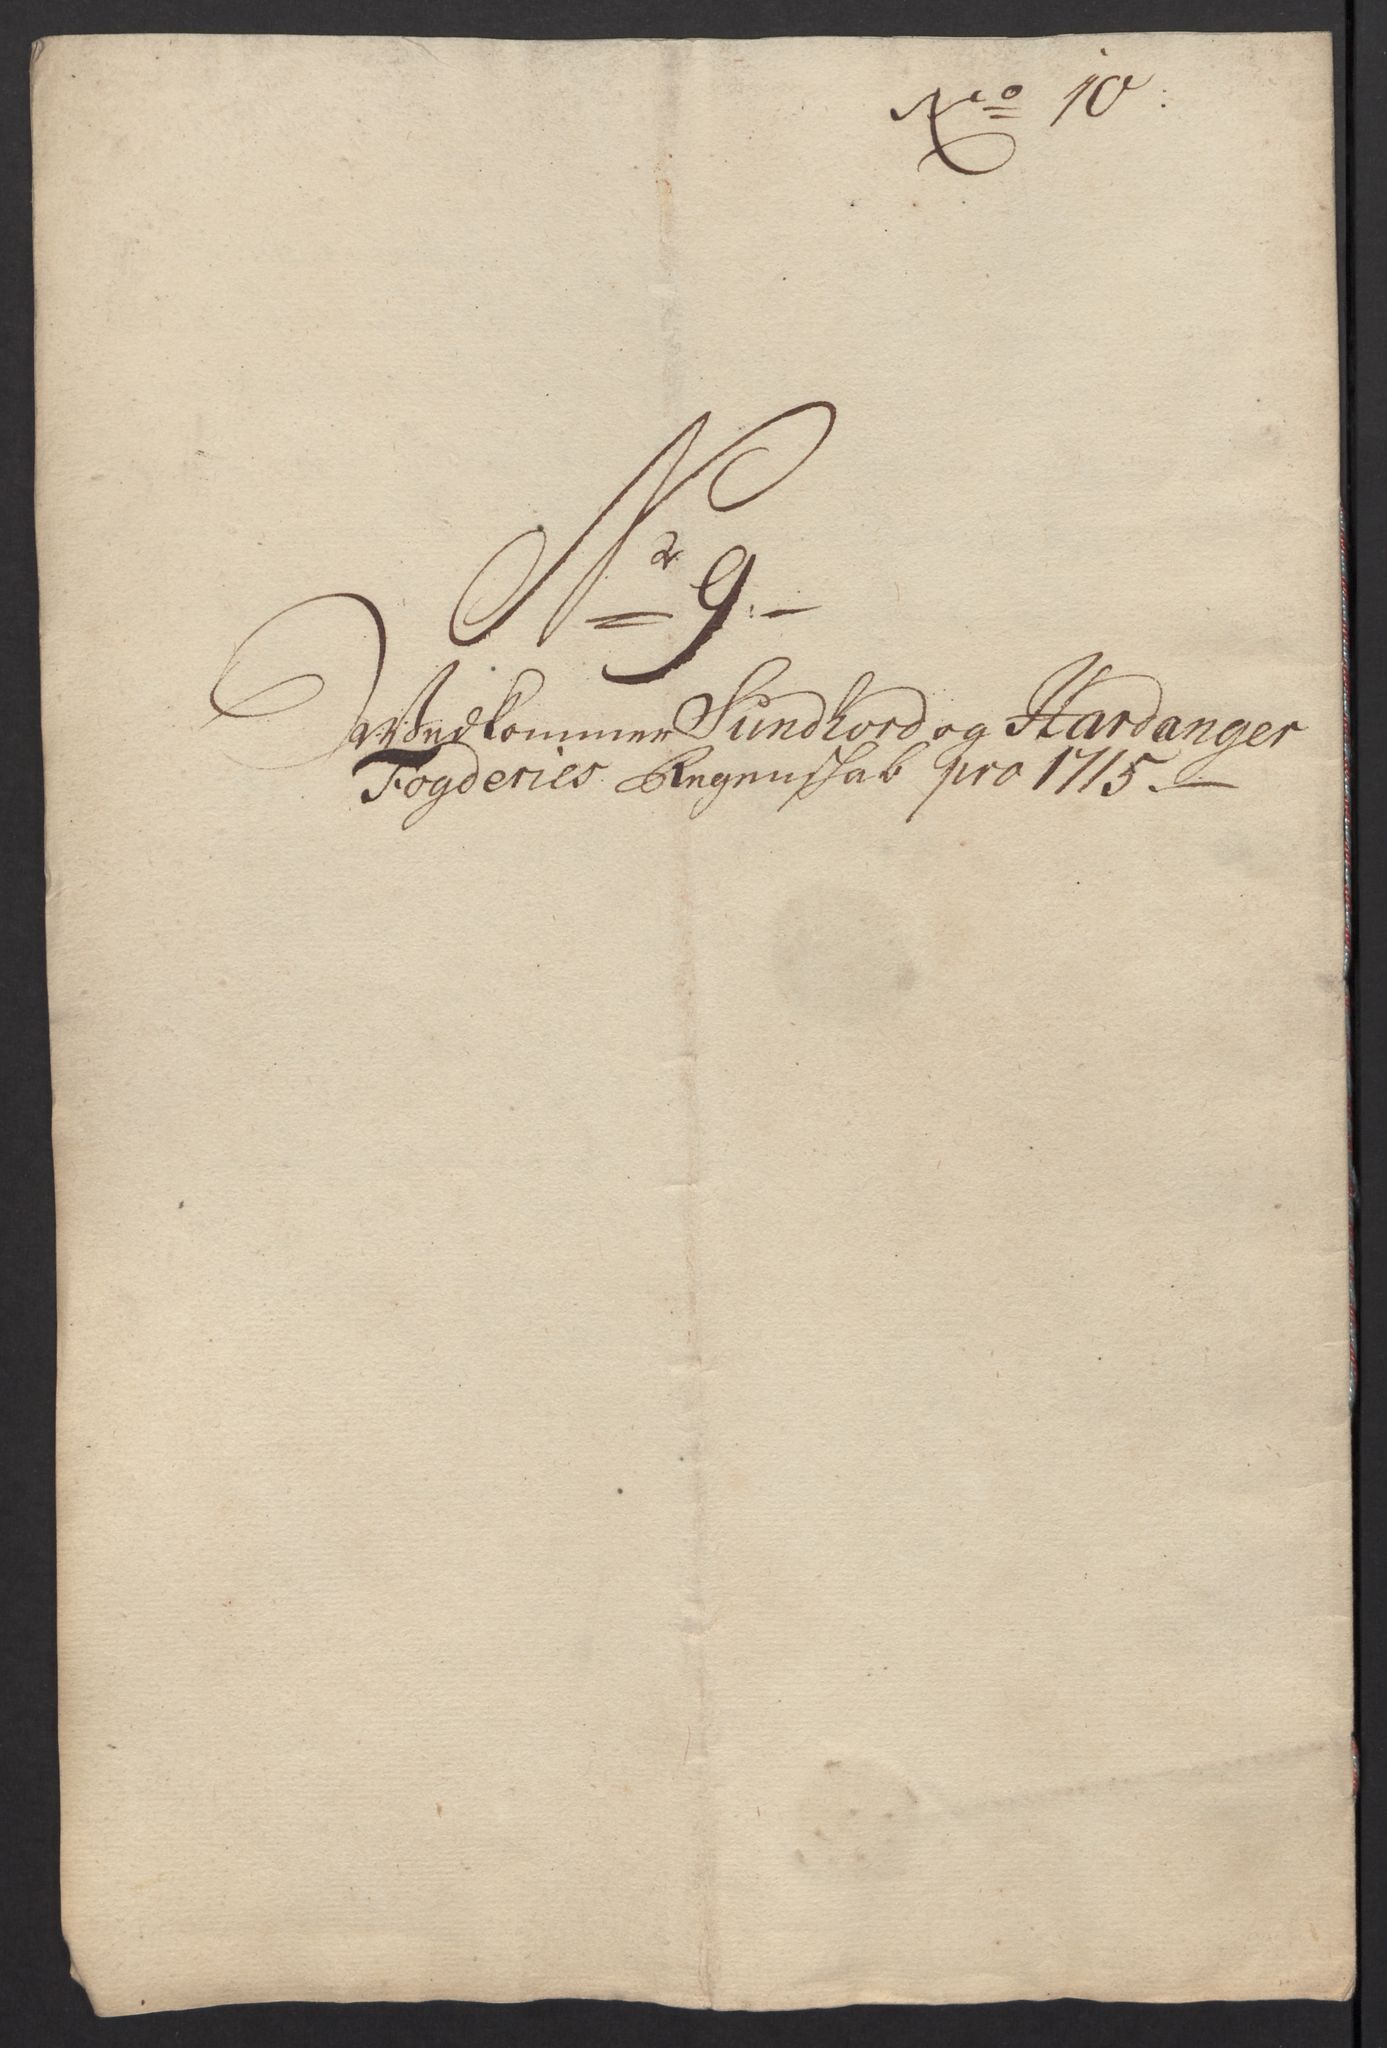 No 10:
Nr 9.
Vedkommer Sundhord og Hardanger
Fogderies Regenskab pro 1715.